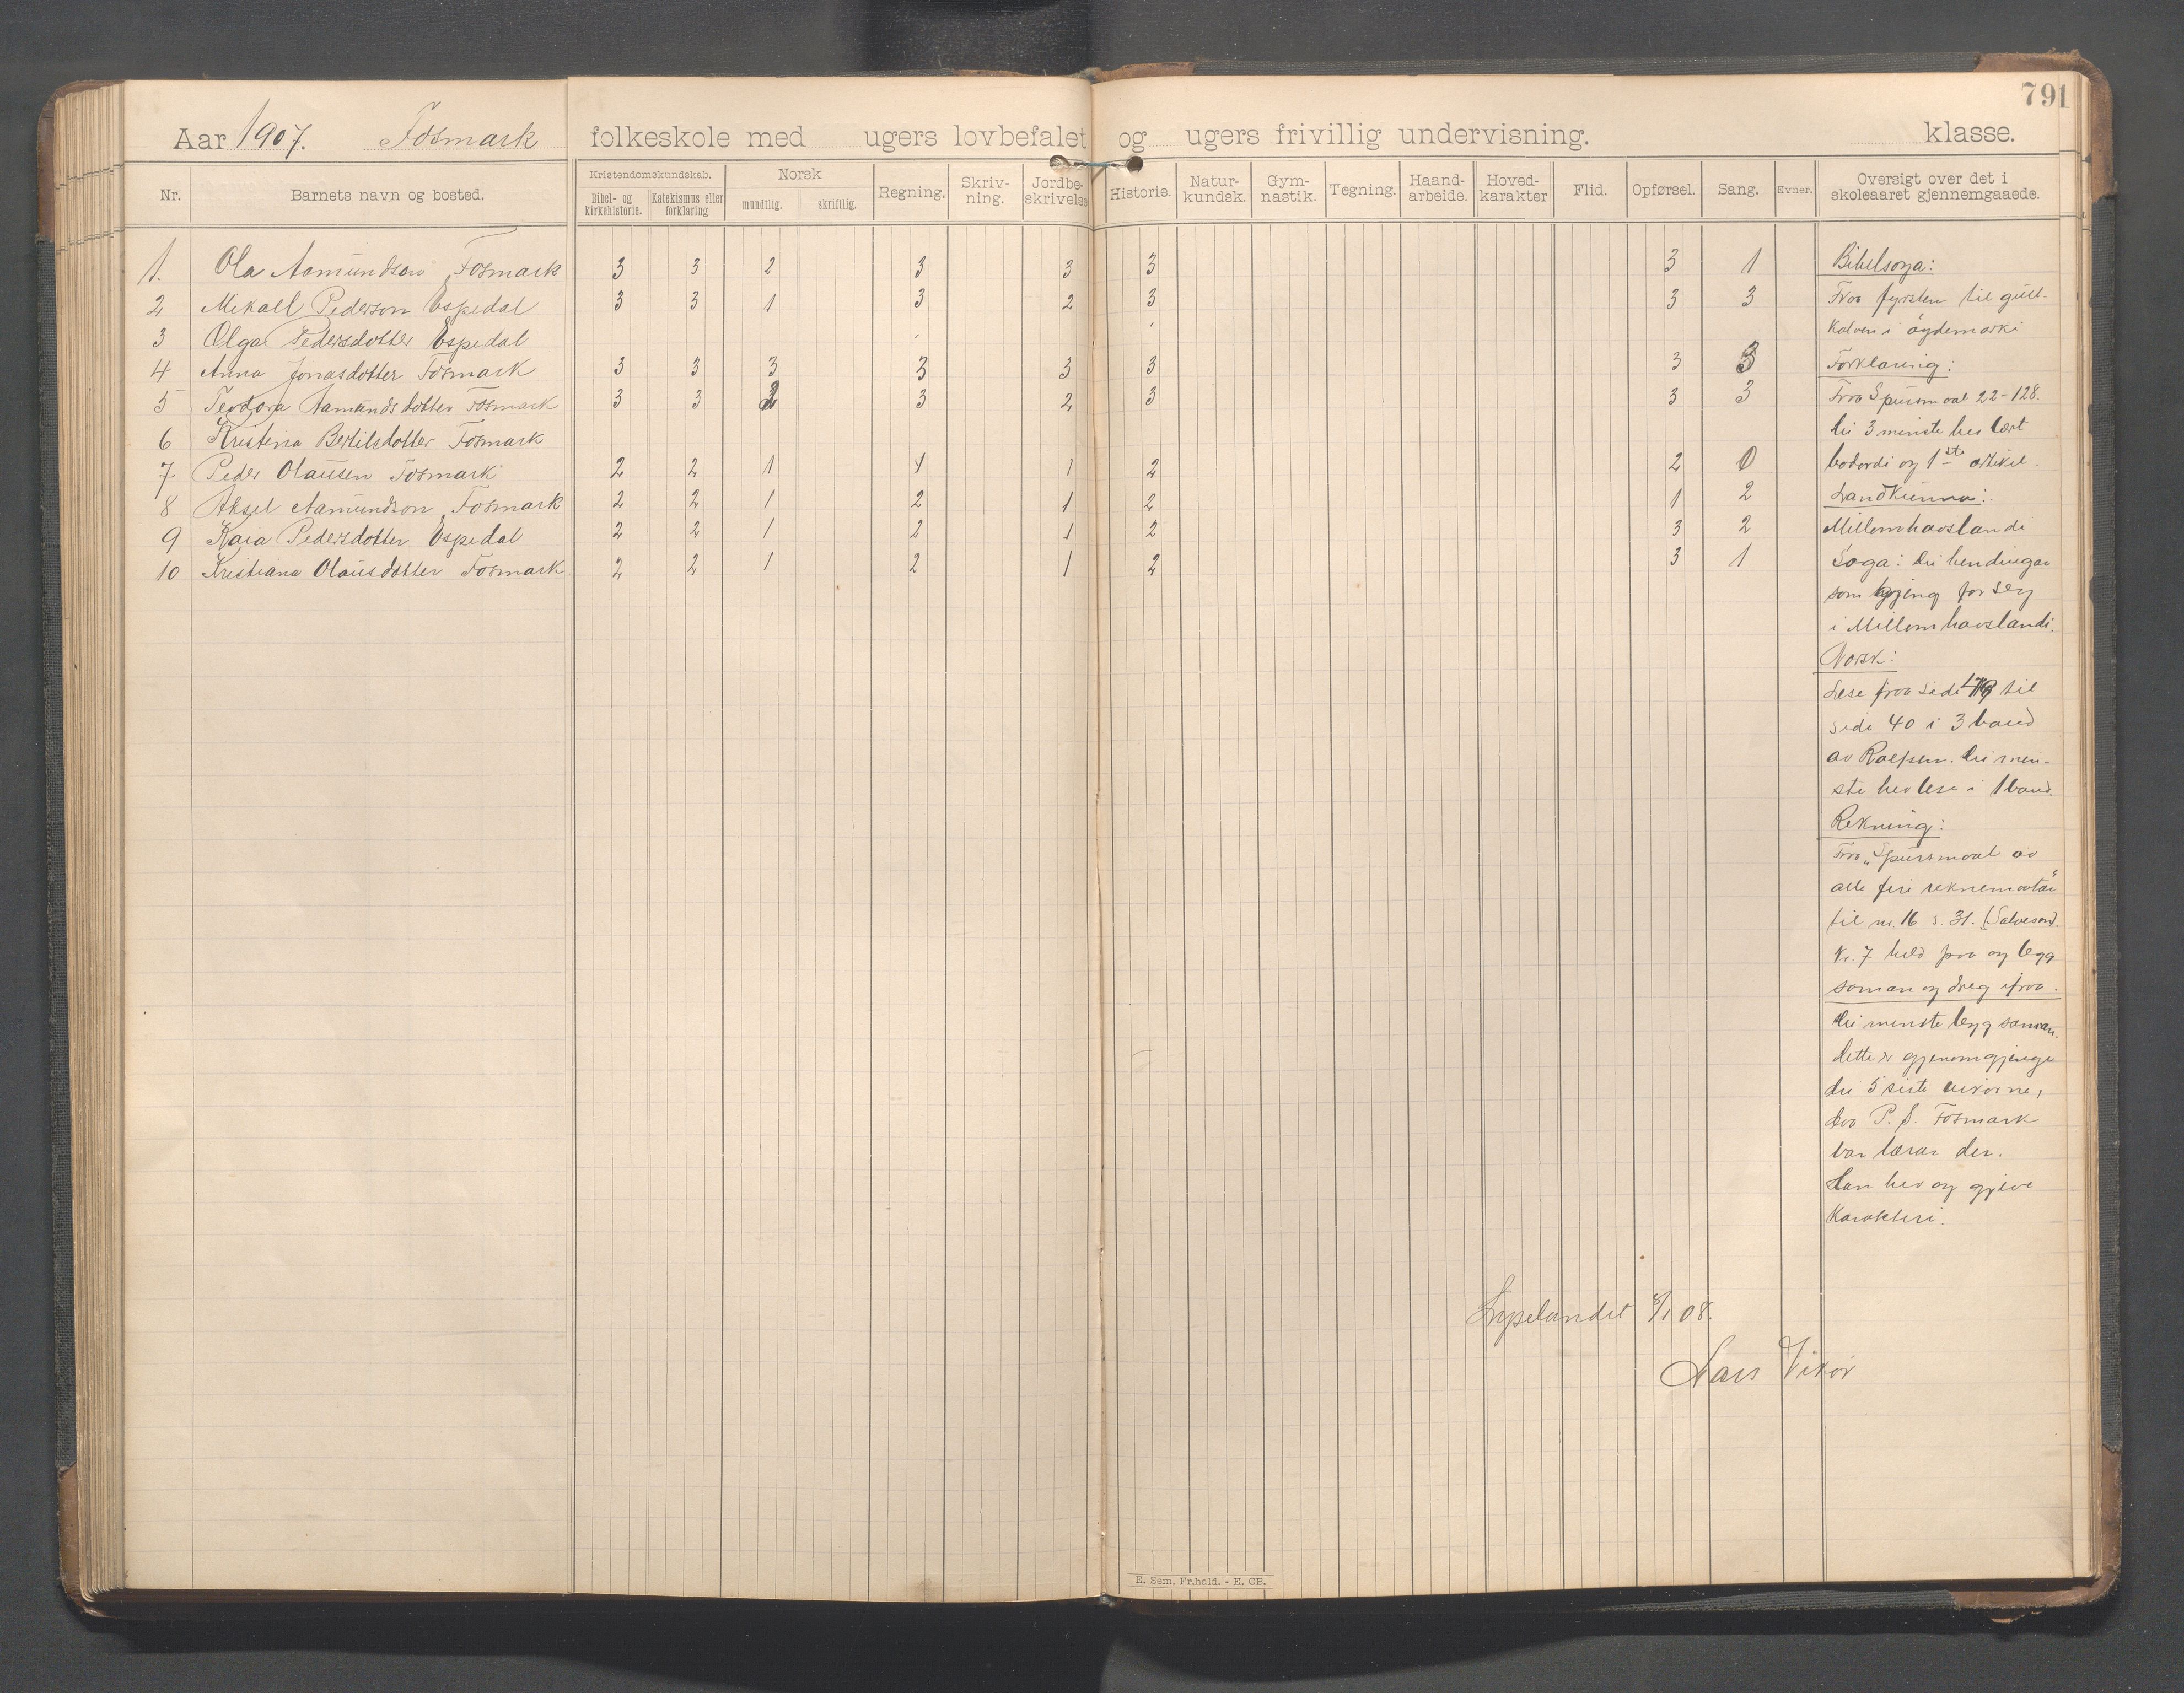 791
Aar 1907. Fosmark folkeskole med ugers lovbefalet og ugers frivillig undervisning. klasse.
Nr. Barnets navn og bosted. Kristendomskundskab. Bibel- og kirkehistorie. Katekismus eller forklaring Norsk mundtlig. skriftlig. Regning. Skriv-ning. Jordbe-skrivelse Historie. Natur-kundsk. Gym-nastik. Tegning. Haand-arbeide. Hoved-karakter Flid. Opførsel. Sang. Evner. Oversigt over det i skoleaaret gjennemgaaede.
1. Ola Aamundson Fosmark 3 3 2 3 3 3 3 1
2 Mikall Pederson Espedal 3 3 1 3 2 3 3 3
3 Olga Pedersdotter Espedal
4 Anna Jonasdotter Fosmark 3 3 3 3 3 3 3 3
5 Teodora Aamundsdotter Fosmark 3 3 2 3 2 3 3 3
6 Kristina Bertilsdotter Fosmark
7 Peder Olausen Fosmark 2 2 1 1 1 2 2 0
8 Aksel Aamundson Fosmark 2 2 1 2 1 2 1 2
9 Kaia Pedersdotter Espedal 2 2 1 2 1 2 3 2
10 Kristiana Olausdotter Fosmark 2 2 1 2 1 2 3 1
Bibelsoga:
Fraa fyrsten til gull-
kalven i øydemarki
Forklaring:
Fraa Spursmaal 22-128.
Dei 3 minste hev lært
bodordi og 1ste artikel.
Landkunna:
Millomhavslandi
Soga: Dei hendingar
som gjeng for seg
i Millomhavslandi.
Norsk:
Lese fraa side til
side 40 i 3 band
av Rolfsen. Dei min-
ste hev lese i 1 band.
Rekning:
Fraa „Spursmaal av
alle fire reknemaatar"
til nr. 16 s. 31. (Salveson).
Nr. 7 held paa og legg
saman og dreg ifraa.
Dei minste legg saman.
Dette er gjenomgjenge
dei 5 siste vikorne,
daa P. S. Fosmark
var lærar der.
Han hev og gjeve
Karakteri.
Lyselandet 8/1 08.
Lars Vikør
E. Sem. Fr.hald. - E. CB.